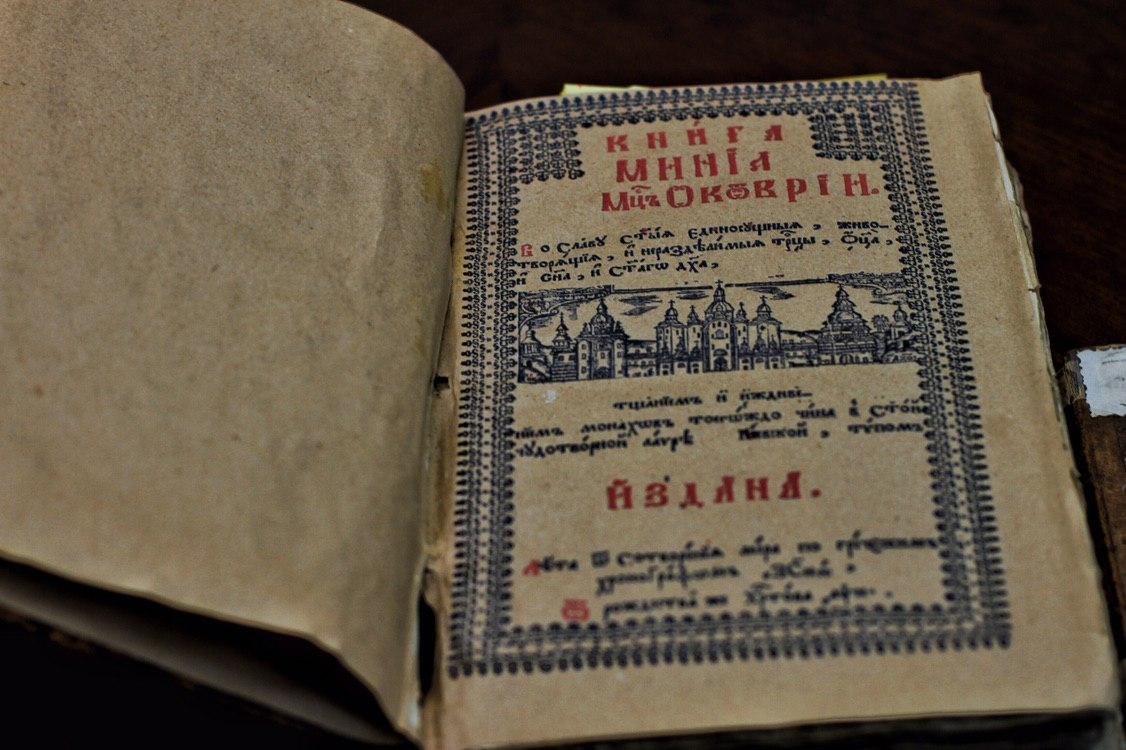 КНИ́ГА
МИНІ́А
Мц҃ъ ОКѠВРІЙ.
Во Сла́ву Ст҃ы́ѧ Єдиносꙋ́щныѧ, живо-
творѧ́щїѧ, и҆ нераздѣли́мыѧ трⷪ҇цы, Ѻ҆ц҃а̀,
и҆ Сн҃а, и҆ Ст҃а́гѡ дх҃а,
тща́нїемъ и҆ и҆ждиве́-
нїемъ мона́хѡвъ тоегѡ́ждо чи́на в Ст҃о́й
чꙋдотво́рной ла́ѵрѣ, тѵ́помъ
И҆́ЗДАНА.
Лѣ́та Ѿ Сотворе́нїѧ мі́ра по гре́ческимъ
хроно́графѡмъ
Ѿ рождества̀ же Хрⷭ҇то́ва